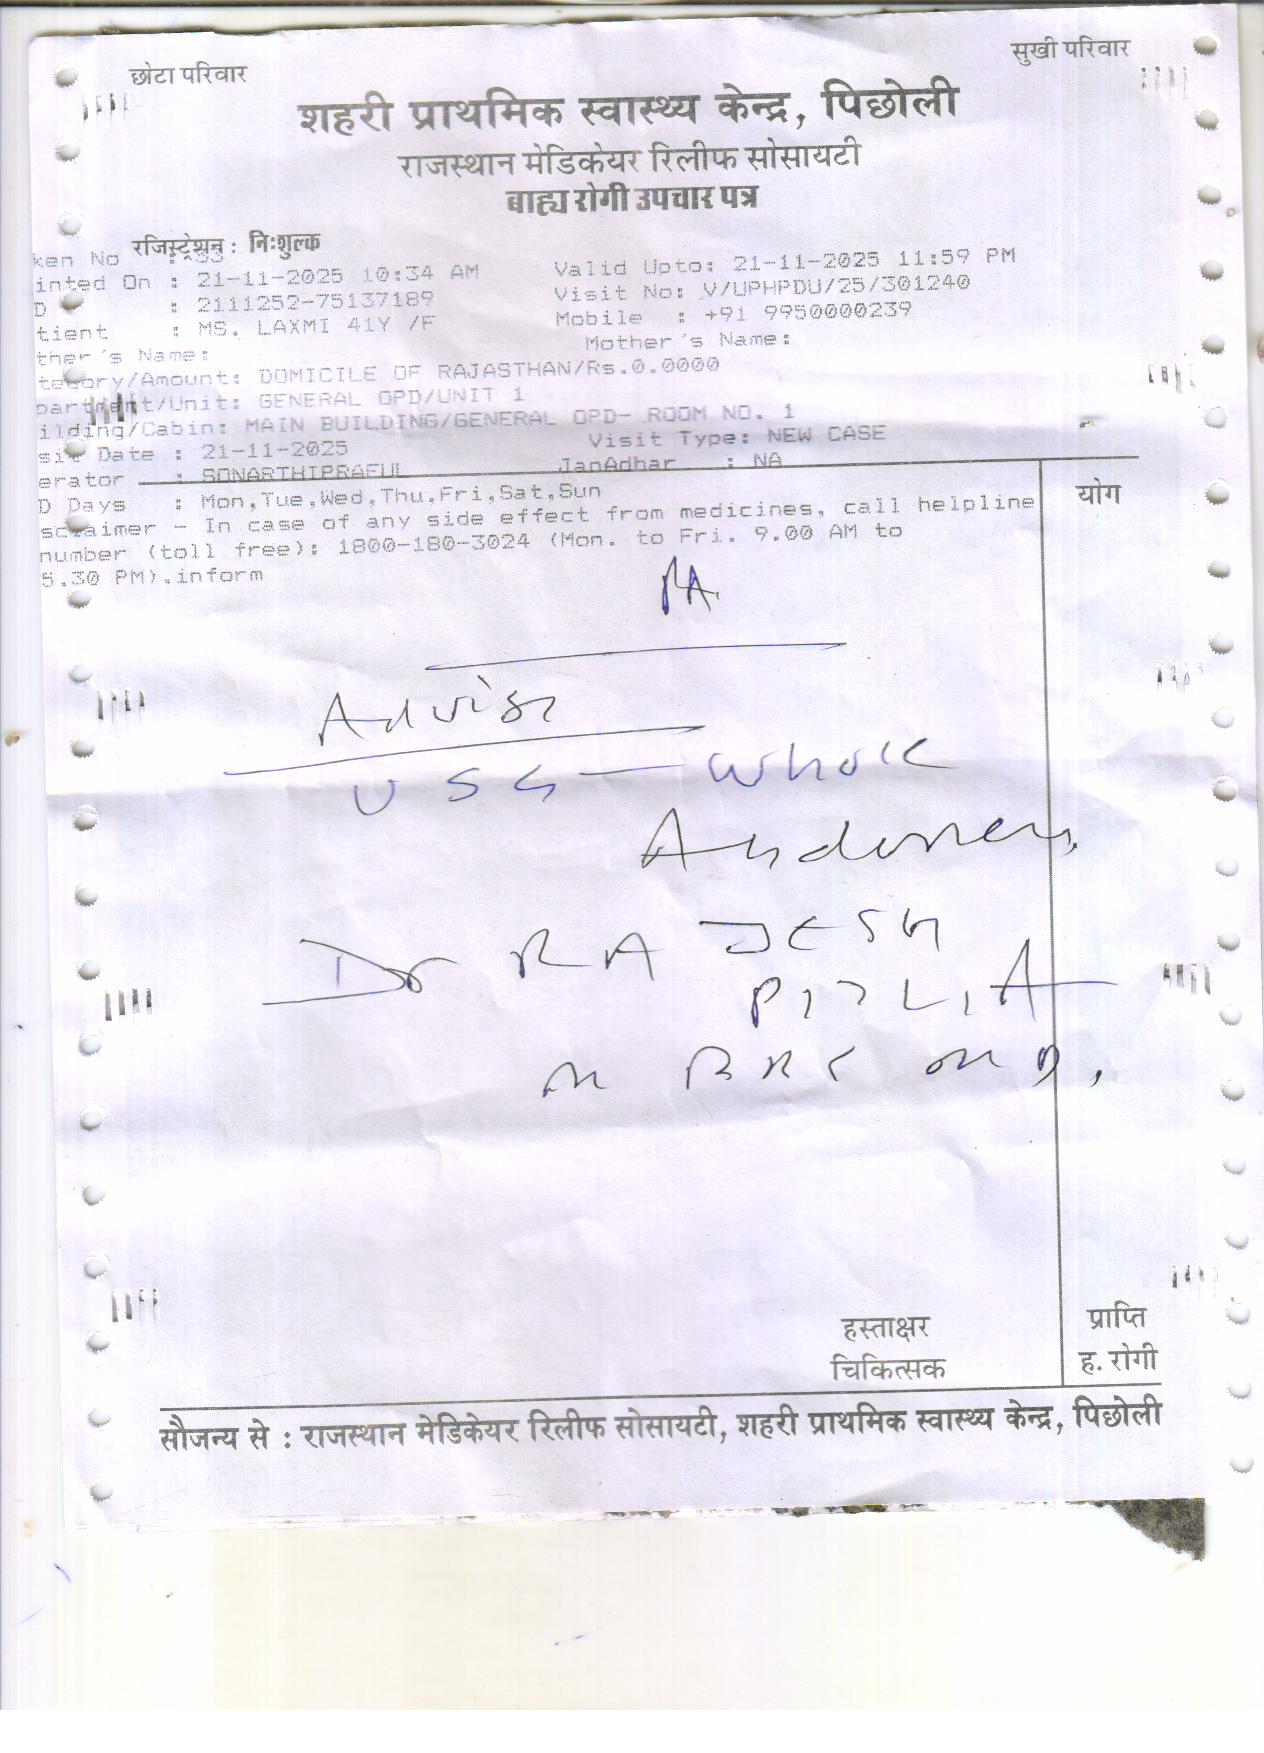 छोटा परिवार
सुखी परिवार
शहरी प्राथमिक स्वास्थ्य केन्द्र, पिछोली
राजस्थान मेडिकेयर रिलीफ सोसायटी
बाह्य रोगी उपचार पत्र
रजिस्ट्रेशन : निःशुल्क
ken No :
inted On : 21-11-2025 10:34 AM Valid Upto: 21-11-2025 11:59 PM
D : 2111252-75137189 Visit No: V/UPHPDU/25/301240
tient : MS. LAXMI 41Y /F Mobile : +91 9950000239
ther's Name: Mother's Name:
tegory/Amount: DOMICILE OF RAJASTHAN/Rs.0.0000
partment/Unit: GENERAL OPD/UNIT 1
ilding/Cabin: MAIN BUILDING/GENERAL OPD- ROOM NO. 1
sit Date : 21-11-2025 Visit Type: NEW CASE
erator : SONARTHIPRAFUL JanAdhar : NA
D Days : Mon,Tue,Wed,Thu,Fri,Sat,Sun
sclaimer - In case of any side effect from medicines, call helpline
number (toll free): 1800-180-3024 (Mon. to Fri. 9.00 AM to
5.30 PM).inform
योग
Advise
USG - Whole
Abdomen
Dr RAJESH
M
हस्ताक्षर
चिकित्सक
प्राप्ति
ह. रोगी
सौजन्य से : राजस्थान मेडिकेयर रिलीफ सोसायटी, शहरी प्राथमिक स्वास्थ्य केन्द्र, पिछोली